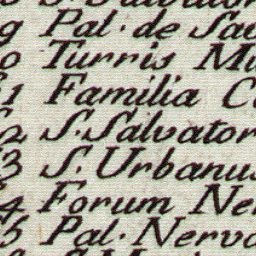 9 Pal. de Sac
0 Turris Mi
1 Familia C
2 S. Salvator
3 S. Urbanus
4 Forum Ner
5 Pal. Nerva